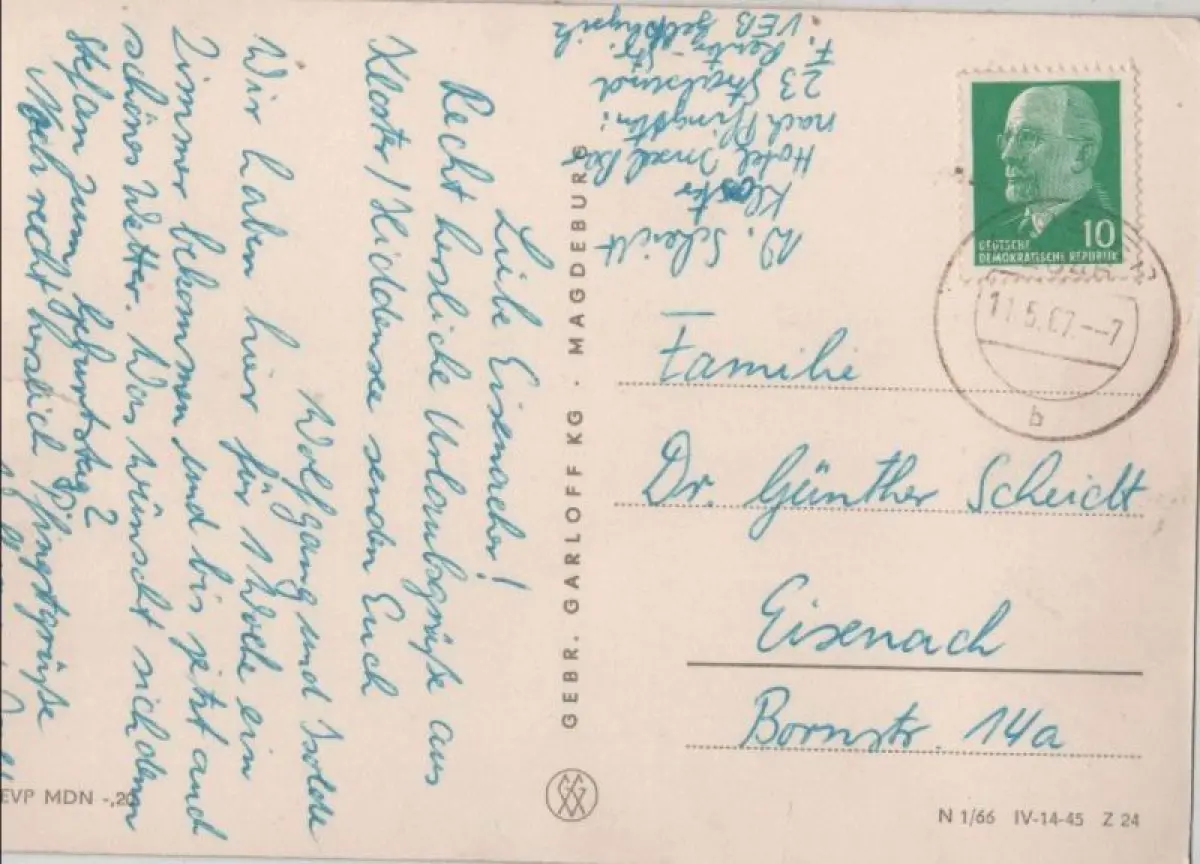 Liebe Eisenacher!
Recht herzliche Urlaubsgrüße aus
Kloster/Hiddensee senden Euch
Wolfgang und Isolde
Wir haben hier für 1 Woche ein
Zimmer bekommen und bis jetzt auch
schönes Wetter. Was wünscht sich denn
Stefan zum Geburtstag?
Noch recht herzlich Pfingstgrüße
W. Scheidt
Kloster
Hotel Insel
nach Pfingsten:
23 Stralsund
Str.
F. VEB
GEBR. GARLOFF KG · MAGDEBURG
10
DEUTSCHE
DEMOKRATISCHE REPUBLIK
11.5.67.--7
b
Familie
Dr. Günther Scheidt
Eisenach
Bornstr. 14a
EVP MDN -,20
N 1/66 IV-14-45 Z 24